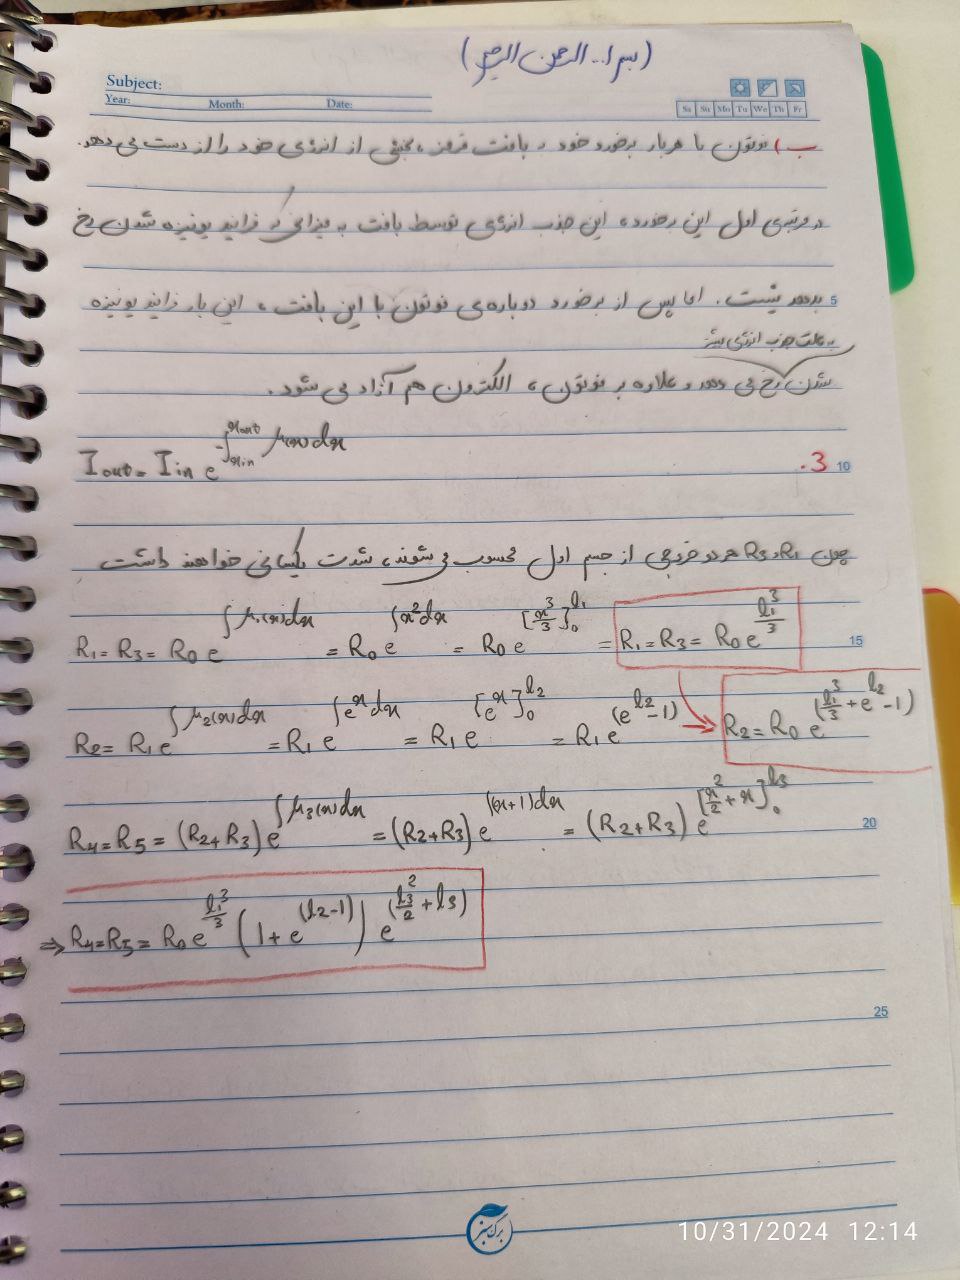 (بسم ا... الرحمن الرحیم)
Subject:
Year: Month: Date:
Sa Su Mo Tu We Th Fr
ب) فوتون با هر بار برخورد خود با بافت قرمز، بخشی از انرژی خود را از دست می دهد.
در مرتبه‌ی اول این برخورد، این جذب انرژی توسط بافت به میزانی که فرایند یونیزه شدن رخ
بدهد نیست. اما پس از برخورد دوباره‌ی فوتون با این بافت، این بار فرایند یونیزه 5
به علت جذب انرژی بیشتر
شدن رخ می دهد و علاوه بر فوتون، الکترون هم آزاد می شود.
I_out = I_in e^{-∫_{x_in}^{x_out} μ(x)dx} .3 10
چون R1 و R3 هر دو خروجی از جسم اول محسوب می شوند، شدت یکسانی خواهند داشت
R₁ = R₃ = R₀ e^{∫μ₁(x)dx} = R₀ e^{∫x²dx} = R₀ e^{[x³/3]₀^{l₁}} = R₁ = R₃ = R₀ e^{l₁³/3} 15
R₂ = R₁ e^{∫μ₂(x)dx} = R₁ e^{∫e^x dx} = R₁ e^{[e^x]₀^{l₂}} = R₁ e^{(e^{l₂}-1)} → R₂ = R₀ e^{(l₁³/3 + e^{l₂} - 1)}
R₄ = R₅ = (R₂+R₃) e^{∫μ₃(x)dx} = (R₂+R₃) e^{∫(x+1)dx} = (R₂+R₃) e^{[x²/2 + x]₀^{l₃}} 20
⇒ R₄ = R₅ = R₀ e^{l₁³/3} (1 + e^{(l₂-1)}) e^{(l₃²/2 + l₃)}
25
برگ سبز
10/31/2024 12:14